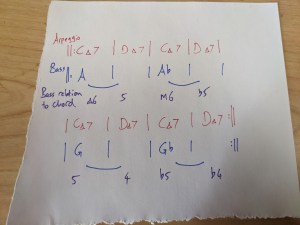 Arpeggio
||: C△7 | D△7 | C△7 | D△7 |
Bass ||: A | | Ab | |
Bass relation to chord △6 5 M6 b5
| C△7 | D△7 | C△7 | D△7 :||
| G | | Gb | :||
5 4 b5 b4